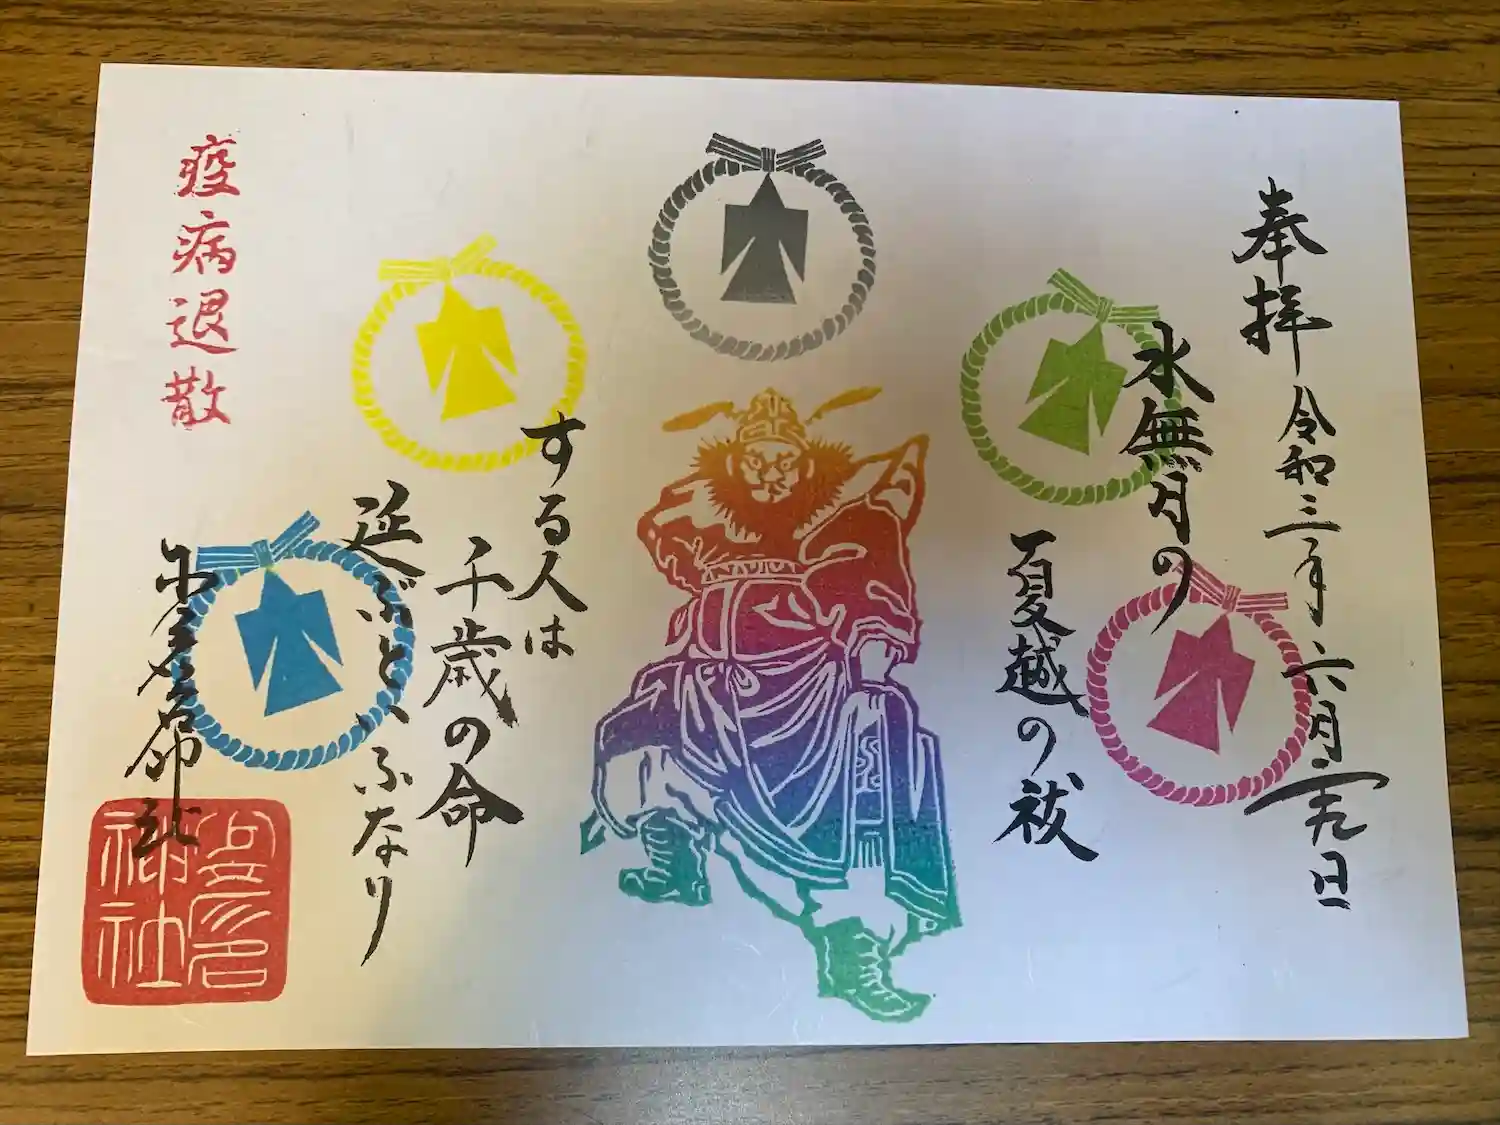 奉拝 令和三年六月二十九日
水無月の
夏越の祓
する人は
千歳の命
延ぶといふなり
神社
疫病退散
神社